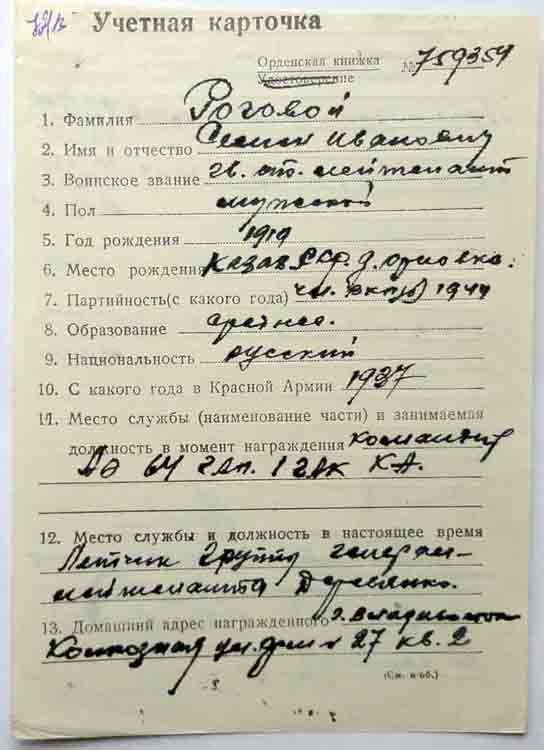 Учетная карточка
Орденская книжка
Удостоверение
№ 759359
1. Фамилия Роговой
2. Имя и отчество Семен Иванович
3. Воинское звание гв. ст. лейтенант
4. Пол мужской
5. Год рождения 1919
6. Место рождения д. орловка.
7. Партийность(с какого года) чл. вкп(б) 1944
8. Образование среднее.
9. Национальность русский
10. С какого года в Красной Армии 1937
11. Место службы (наименование части) и занимаемая
должность в момент награждения командир
АЭ 64 гАп. 1 гАк КА.
12. Место службы и должность в настоящее время
Летчик группы генерал-
лейтенанта
13. Домашний адрес награжденного г. Владивосток
Колхозная ул. дом № 27 кв. 2
(См. н-об.)